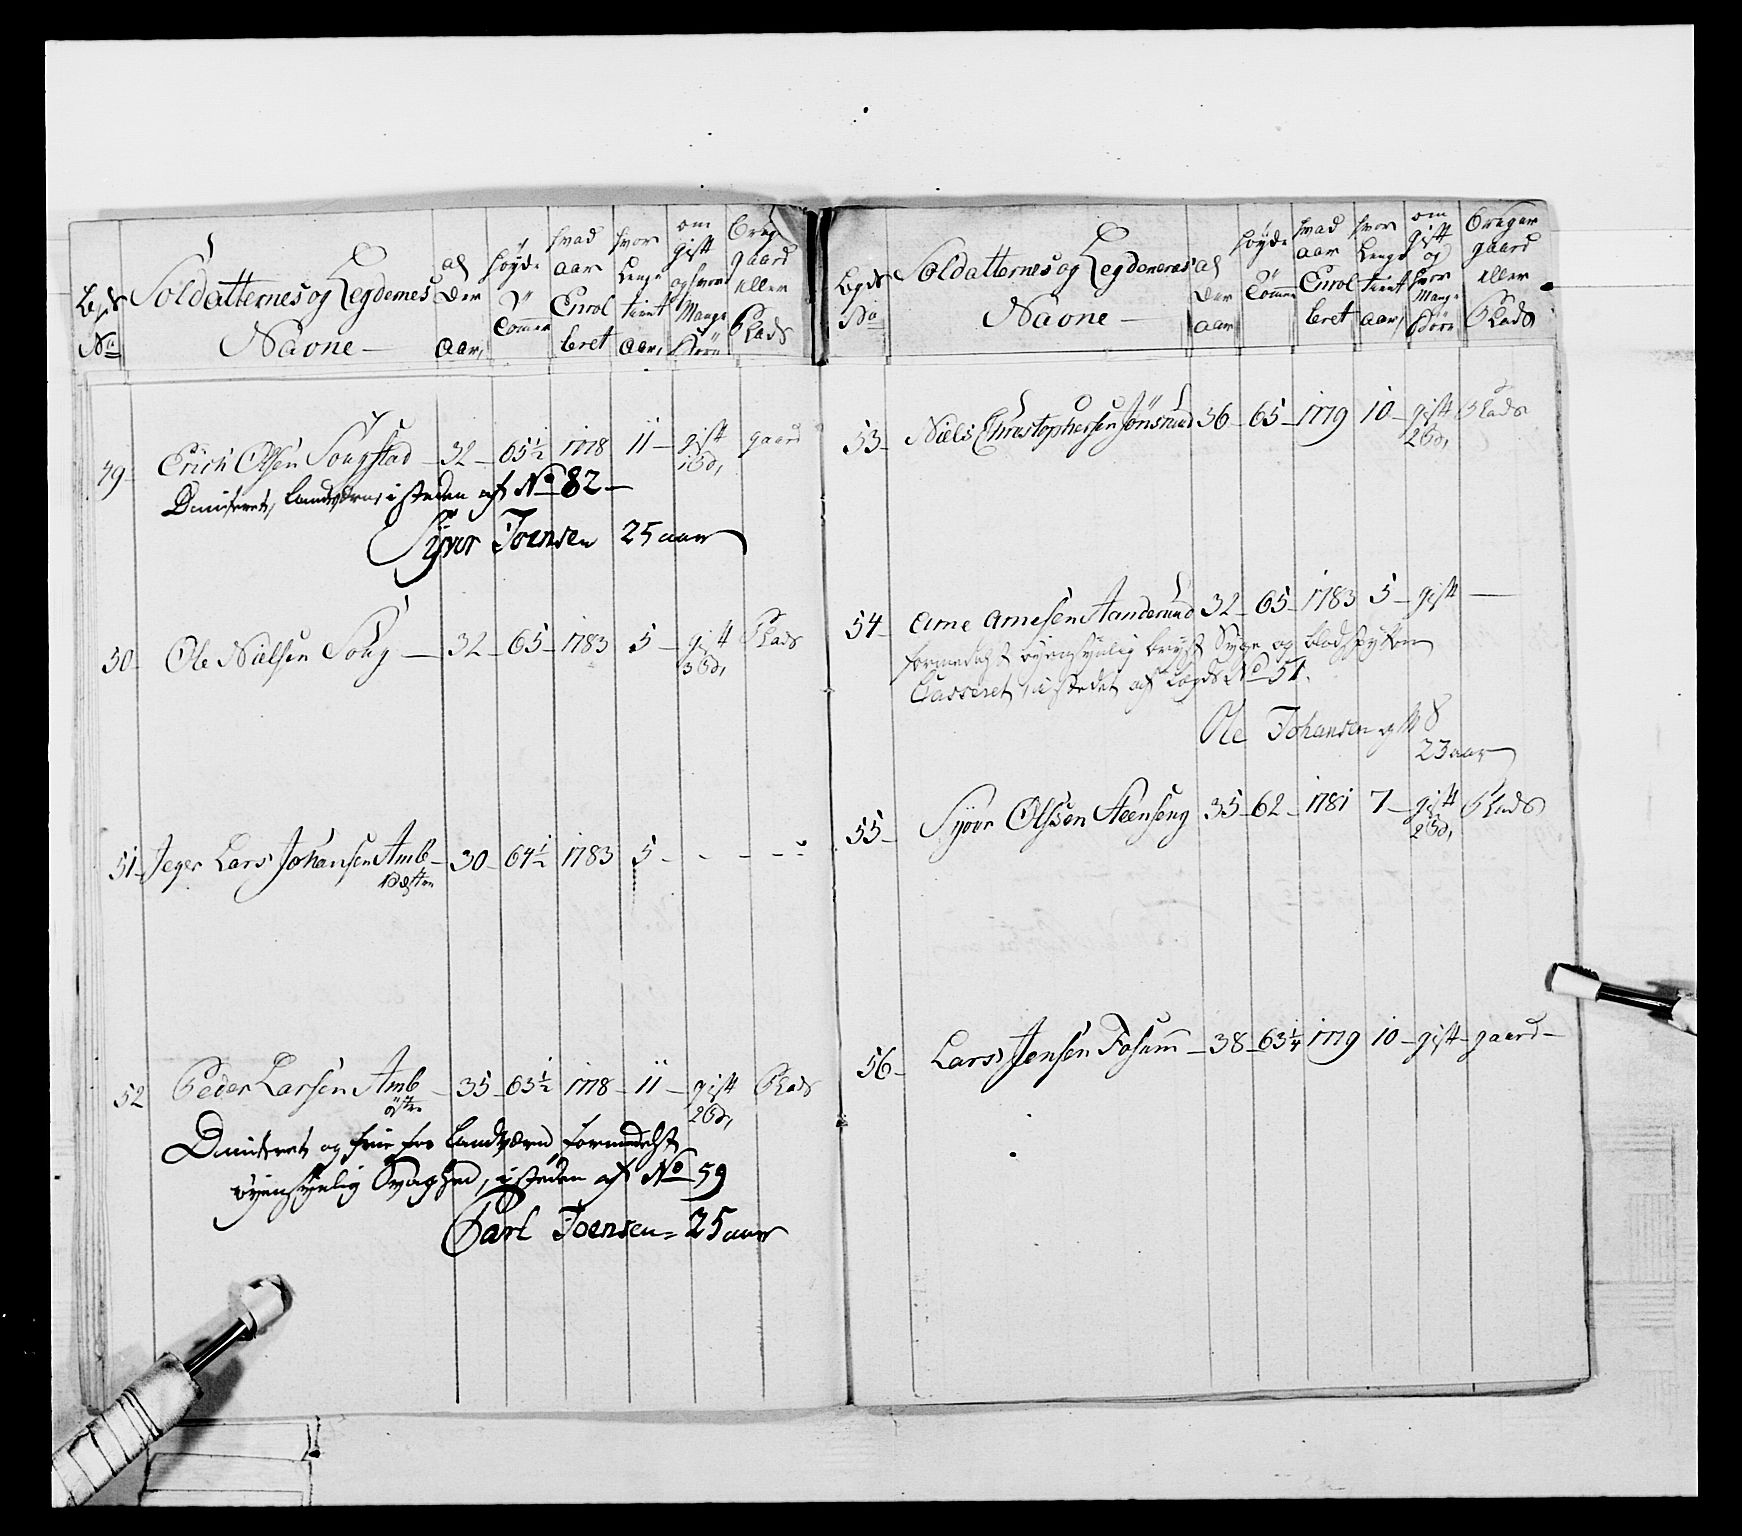 Lgds No
Soldatternes og Legdernes Navne
al der aar,
høyde Tommer
hvad aar Enrolleret
hvor Lenge tient aar,
om gift og hvor Mange Børn
Brug gaard eller Plads
49 Erich Olsen Songstad 32 65½ 1778 11 gift 1 B, gaard
Dimiteret, Landværn, i steden af No 82
Syver Joensen 25 aar
50 Ole Nielsen Song 32 65 1783 5 gift 3 B, Plads
51 Jeger Lars Johansen Amb 30 64½ 1783 5 - - -
Vestre
52 Peder Larsen Amb 35 63½ 1778 11 gift 2 B, Plads
østre
Dimiteret og frie for Landværn formedelst
øyensynlig Svaghed, i steden af No 59
Carl Joensen 25 aar
Lgds No
Soldatternes og Legdernes Navne
al der aar
høyde Tommer
hvad aar Enrolleret
hvor Lenge tient aar,
om gift og hvor Mange Børn
Bruger gaard eller Plads
53 Niels Christophersen Jonsrud 36 65 1779 10 gift 2 B, Plads
54 Arne Arnesen Aanderud 32 65 1783 5 gift
formedelst øyensynlig bryst Syge og blodspytten
Casseret, i stedet af Lægds No 51.
Ole Johansen gift
23 aar
55 Syver Olssen Steenseng 35 62 1781 7 gift 2 B, Plads
56 Lars Jensen Fosum 38 63¼ 1779 10 gift gaard